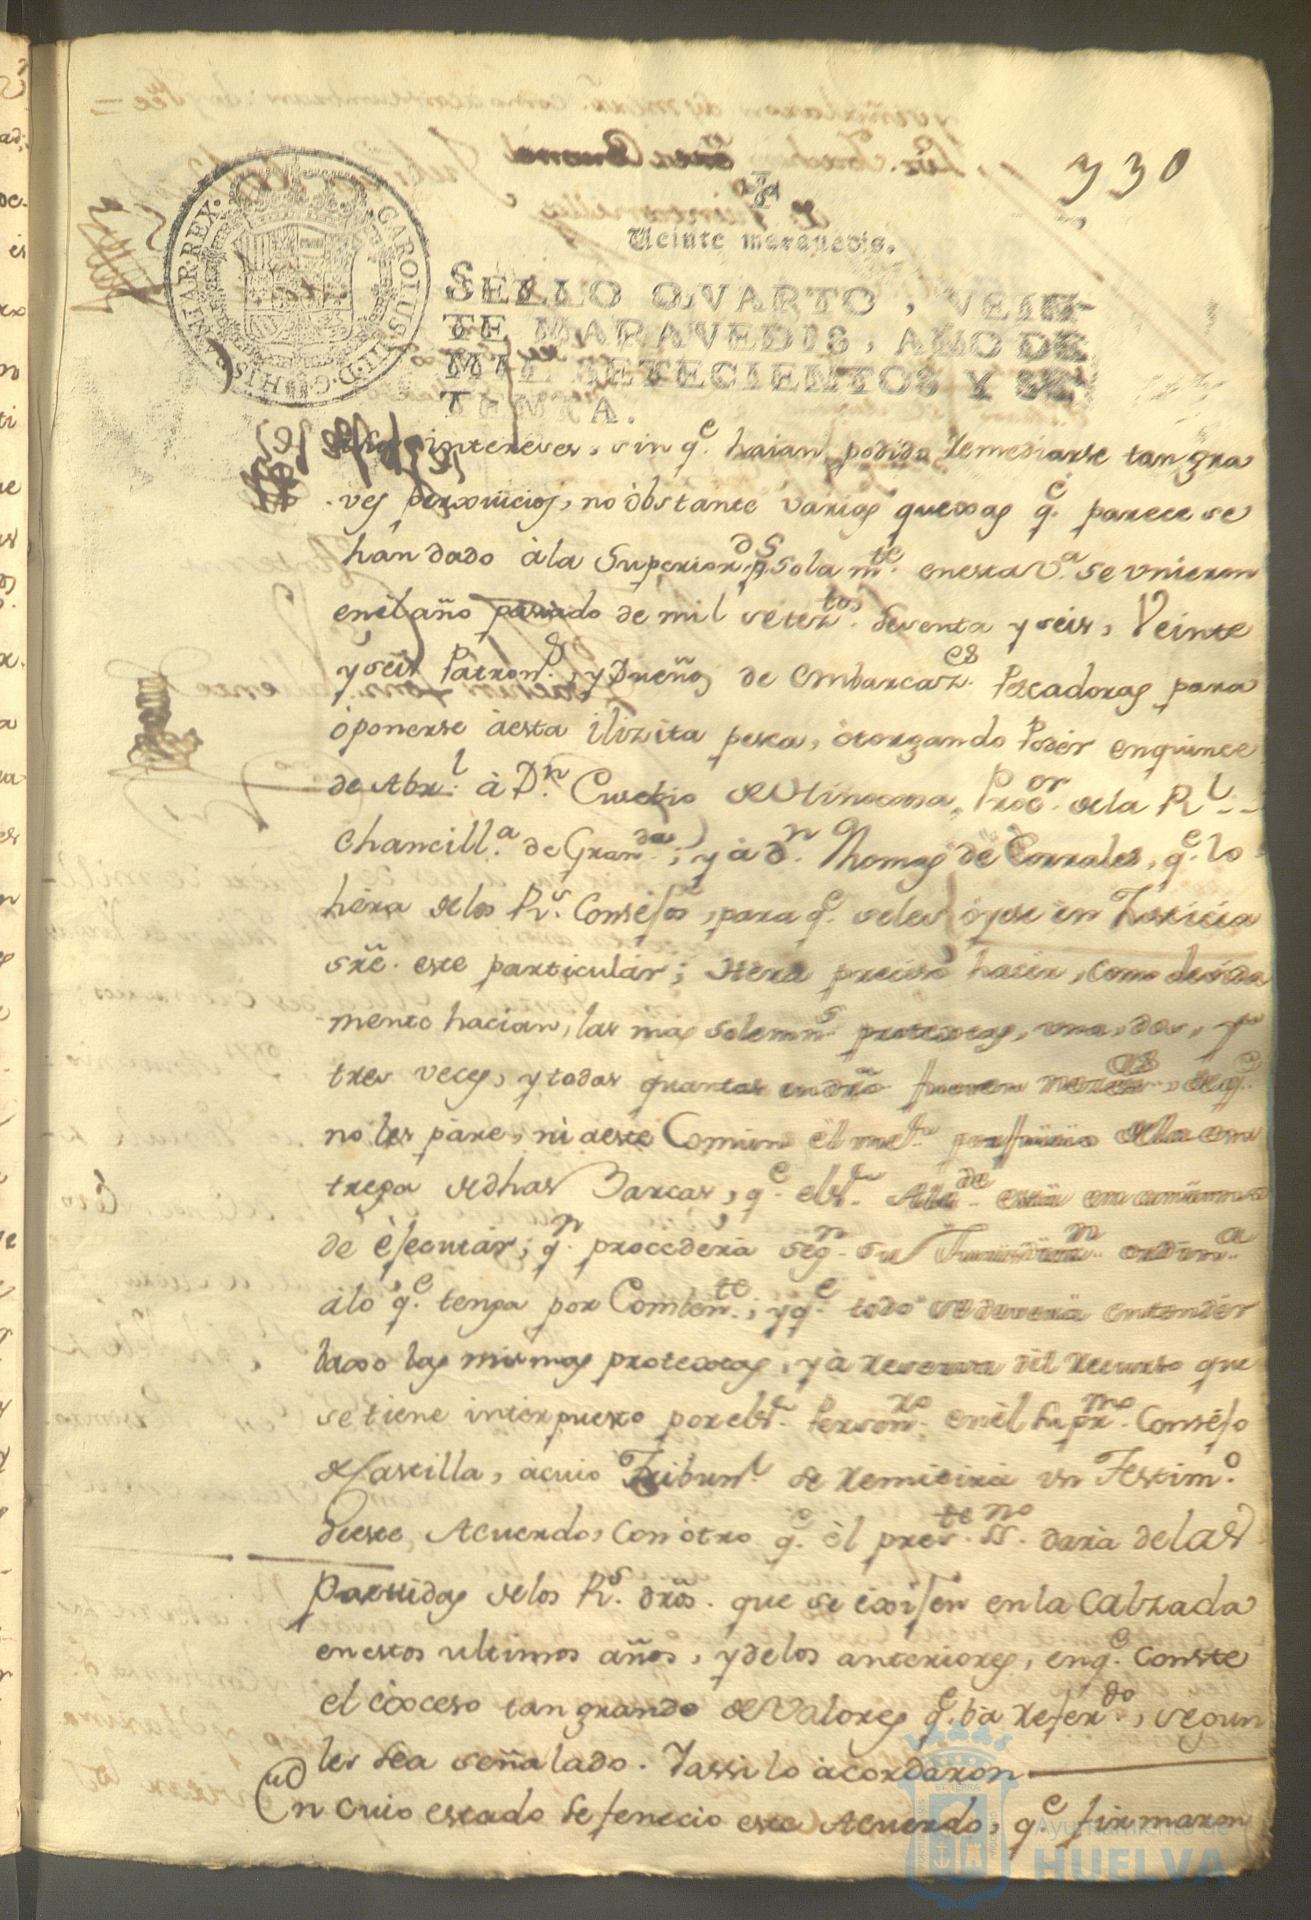 330
CAROLUS III D G HISPANIAR REX
Veinte maravedis.
SELLO QVARTO, VEIN-
TE MARAVEDIS, AÑO DE
MIL SETECIENTOS Y SE-
TENTA.
intereses, sin q.e haian podido remediarse tan gra
ves perxuicios, no óbstante varias quexas q.e parece se
hán dado à la Superior.ds sola m.te en esta V.a se unieron
en él año pasado de mil setez.tos sesenta y seis, Veinte
y seis Patron.s, y Dueños de embarcaz.es Pescadoras para
óponerse à esta ilizita pesca, ótorgando Poder en quince
de Abr.l à D.n Eusebio de Hinoxosa, Proc.or de la R.l
Chancill.a de Gran.da; y à d.n Thomas de Corrales, q.e lo
hera de los R.s Conséjos, para q.e se les óyese en Justicia
sre. este particular; Hera preciso hacer, como devida
mente hacian, las mas solemn.s protextas, una, dos, y
tres veces, y todas quantas en dro fueren nezes.as, de q.e
no les páre, ni a este Comun él mer.r perjuicio de la en
trega de dhas Barcas, q.e el s.r Alc.de está en animo
de éjecutár; q.n procederá seg.n su Jurisdiz.n ordin.a
á lo q.e tenga por Comben.te; y q.e todo se deverá entendér
baxo las mismas protextas, y à reserva del recurso que
se tiene interpuesto por el s.r Person.ro en él Supr.mo Conséjo
de Castilla, à cuio Tribun.l se remitirá un Testim.o
de este Acuerdo, con ótro q.e él pres.te ss.no dará de las
Partidas de los R.s dros. que se éxijen en la Calzada
en estos ultimos años, y de los anteriores, en q.e conste
el éxceso tan grande de Valores q.e bá refer.do, segun
les sea señalado. Y assi lo àcordaron
En cuio estado se feneció este Acuerdo, q.e firmaron
Ayuntamiento de
HUELVA